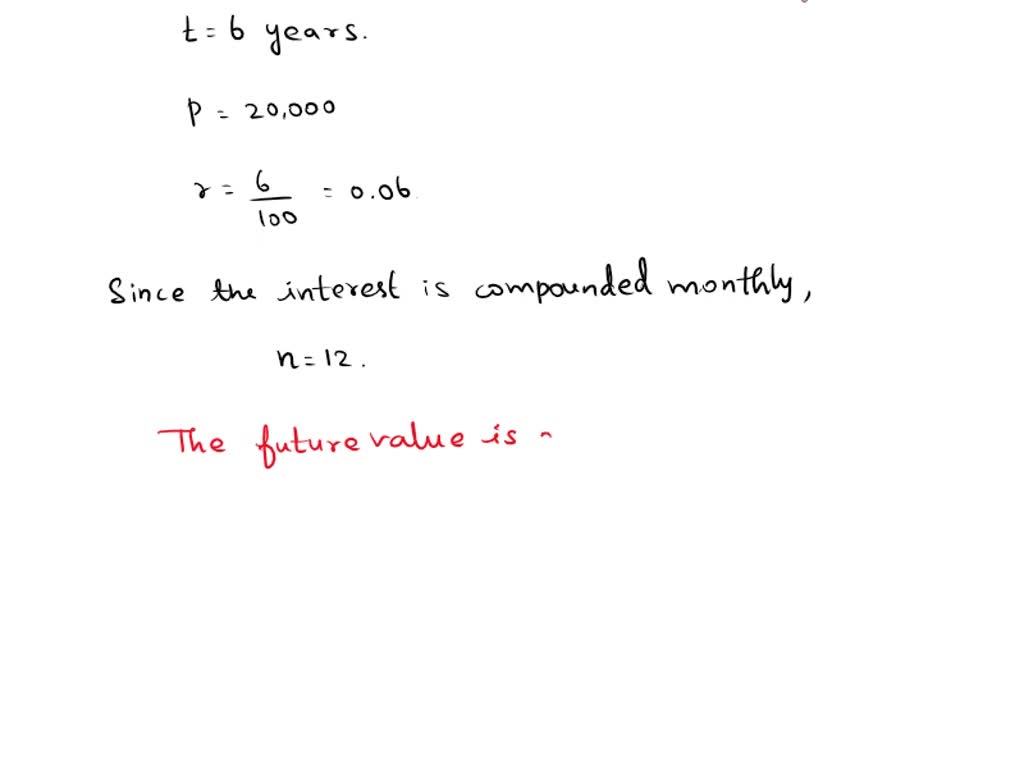 t = 6 years.
P = 20,000
r = 6/100 = 0.06
Since the interest is compounded monthly,
n = 12.
The future value is